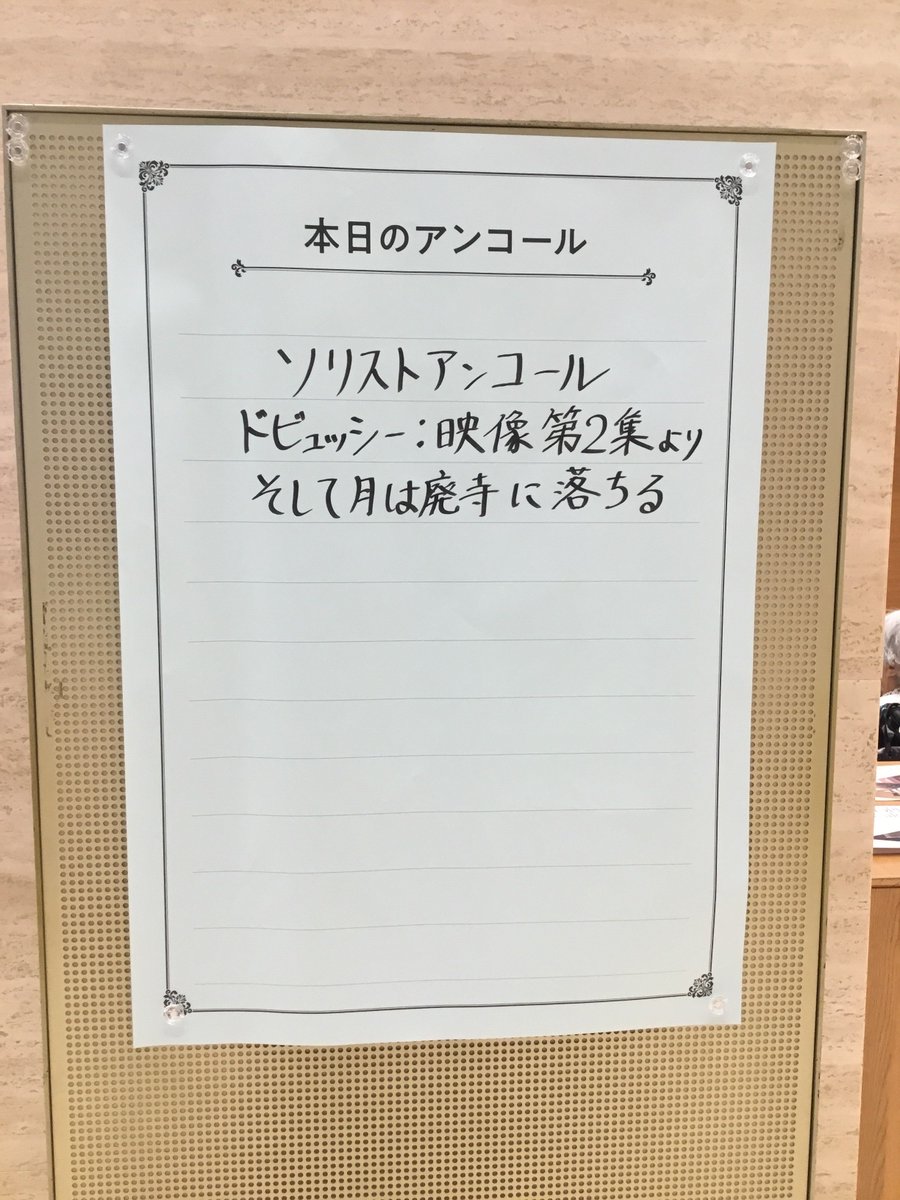 本日のアンコール
ソリストアンコール
ドビュッシー:映像第2集より
そして月は廃寺に落ちる